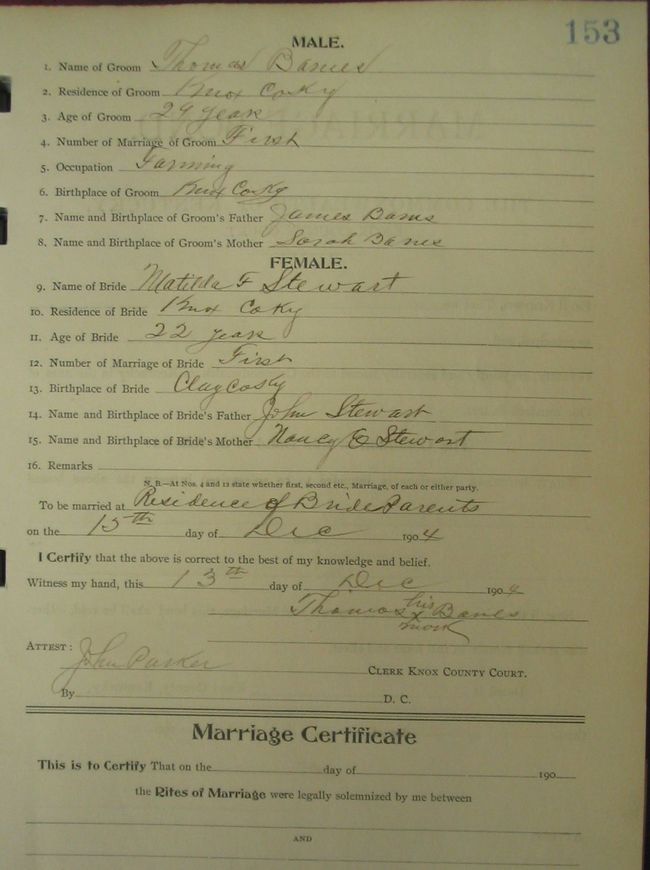 153
MALE.
1. Name of Groom Thomas Banes
2. Residence of Groom Knox Co Ky
3. Age of Groom 29 years
4. Number of Marriage of Groom First
5. Occupation Farming
6. Birthplace of Groom Knox Co Ky
7. Name and Birthplace of Groom's Father James Banes
8. Name and Birthplace of Groom's Mother Sarah Banes
FEMALE.
9. Name of Bride Matilda F Stewart
10. Residence of Bride Knox Co Ky
11. Age of Bride 22 years
12. Number of Marriage of Bride First
13. Birthplace of Bride Clay Co Ky
14. Name and Birthplace of Bride's Father John Stewart
15. Name and Birthplace of Bride's Mother Nancy E Stewart
16. Remarks
N. B.—At Nos. 4 and 12 state whether first, second etc., Marriage, of each or either party.
To be married at Residence of Bride Parents
on the 15th day of Dec 1904
I Certify that the above is correct to the best of my knowledge and belief.
Witness my hand, this 13th day of Dec 1904
Thomas his x mark Banes
ATTEST:
John Parker CLERK KNOX COUNTY COURT.
By D. C.
Marriage Certificate
This is to Certify That on the day of 190
the Rites of Marriage were legally solemnized by me between
AND